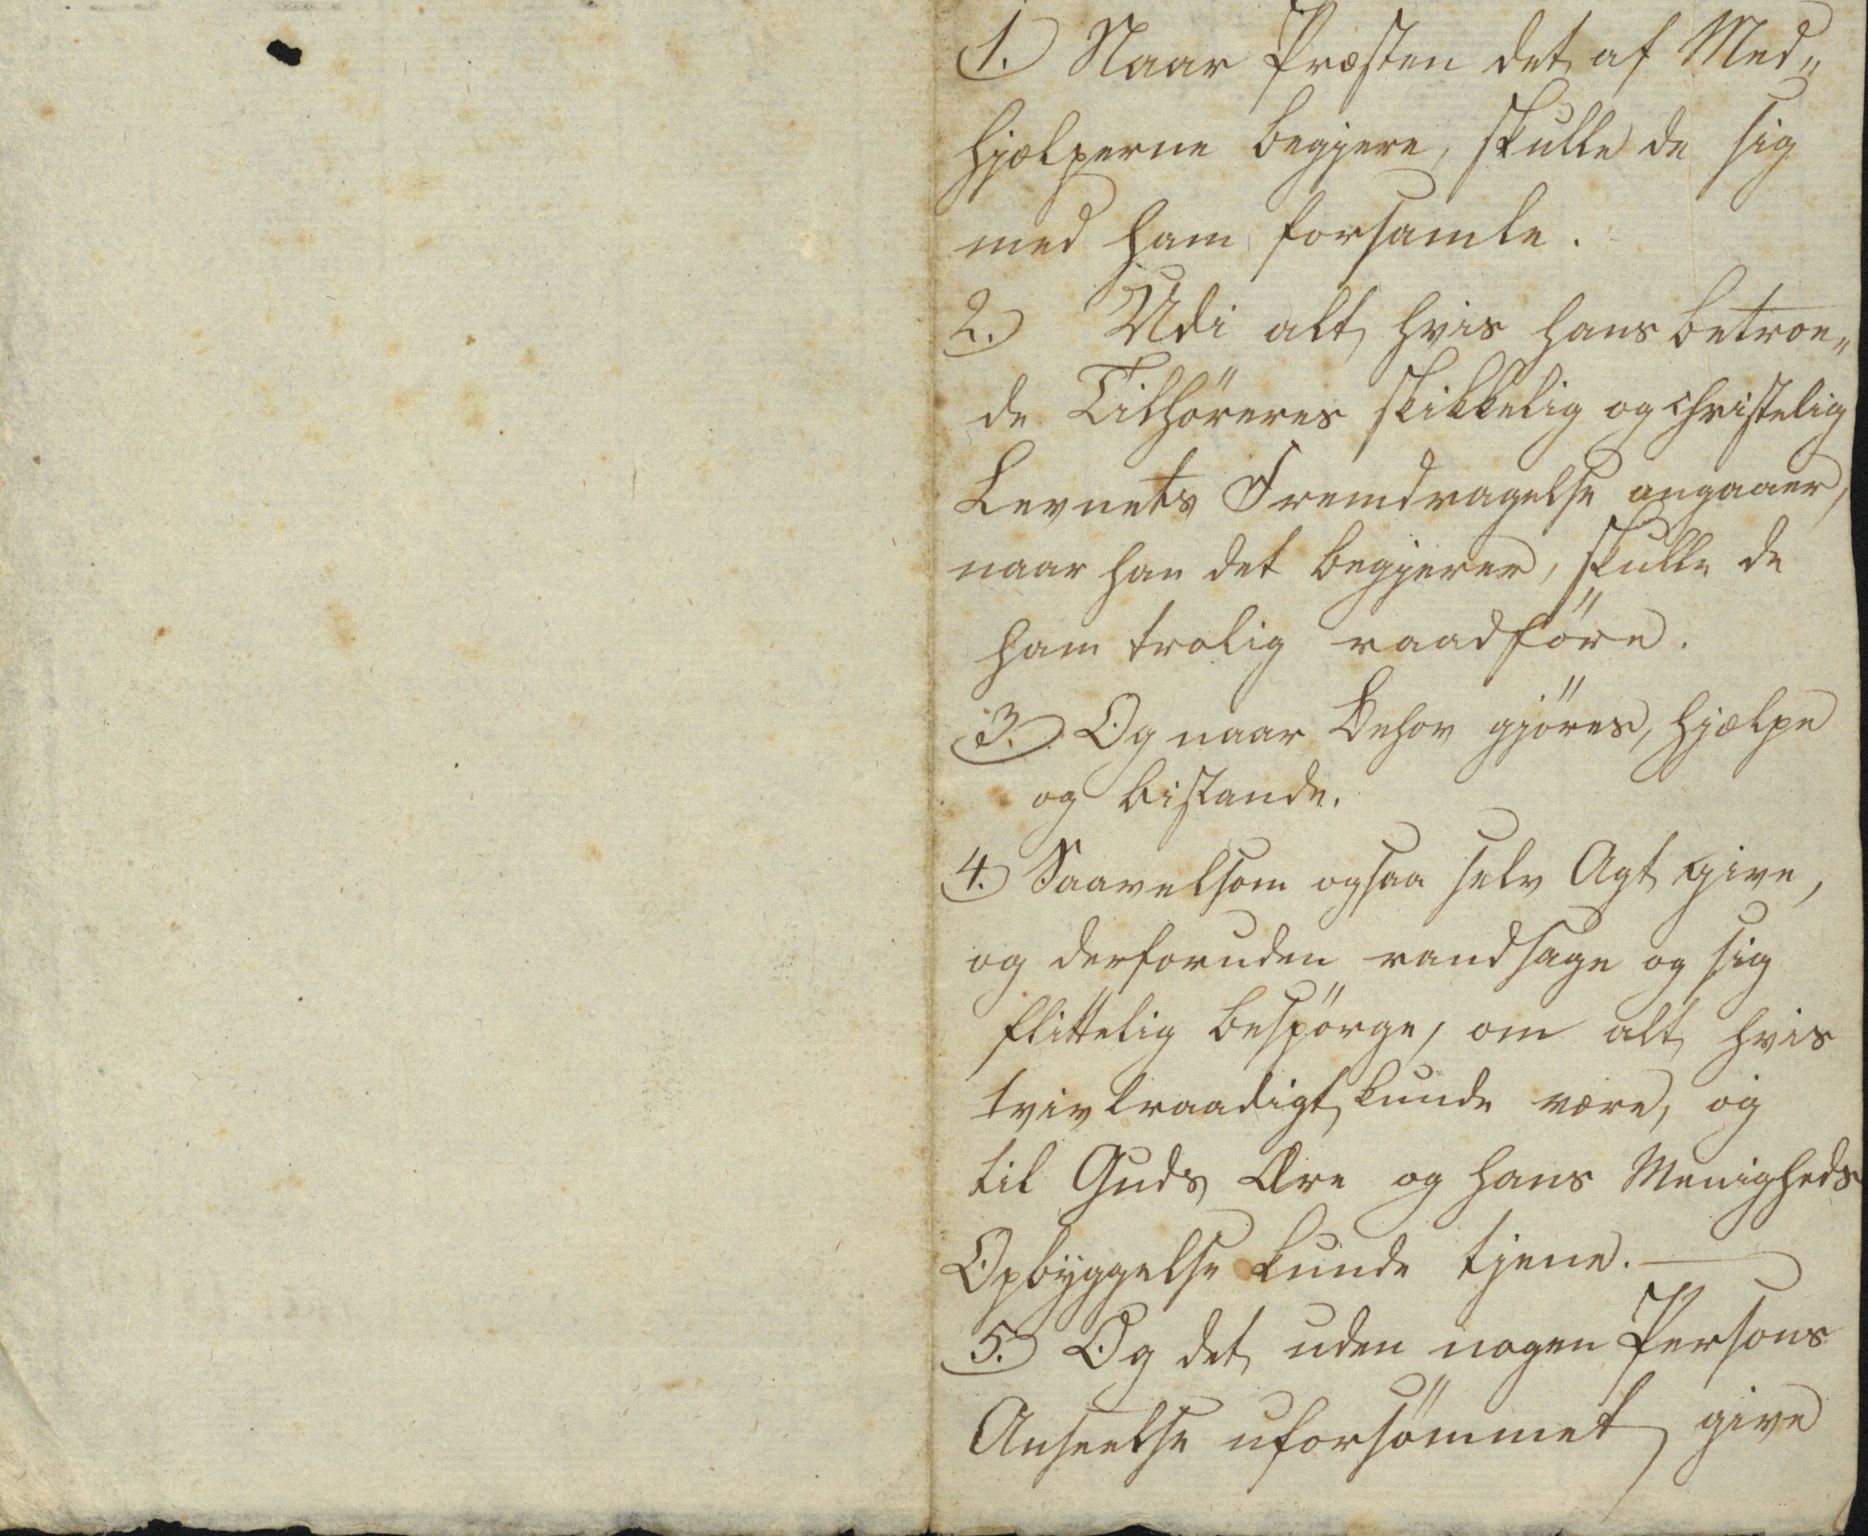 1. Naar Præsten det af Med„
hjælperne begjere, skulle de sig
med ham forsamle.
2. Udi alt, hvis hans betroe„
de Tilhöreres skikkelig og christelig
Levnets Fremdragelse angaaer,
naar han det begjerer, skulle de
ham trolig raadföre.
3. Og naar Behov gjöres, hjælpe
og bistande.
4. Saavelsom ogsaa selv Agt give,
og derforuden randsage og sig
flittelig bespörge, om alt, hvis
tvivlraadigt kunde være, og
til Guds Ære og hans Menigheds
Opbyggelse kunde tjene.
5. Og det, uden nogen Persons
Anseelse uforsömmet, give